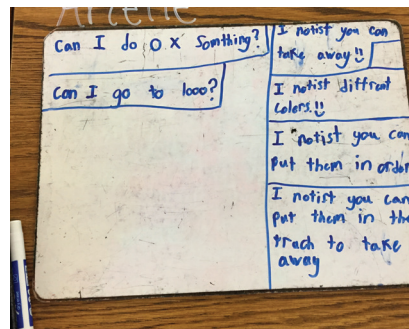 Arlette
Can I do 0 x Somthing?
Can I go to 1000?
I notist you can
take away!!
I notist diffrent
Colers.!!
I notist you can
Put them in order
I notist you can
Put them in the
trach to take
away